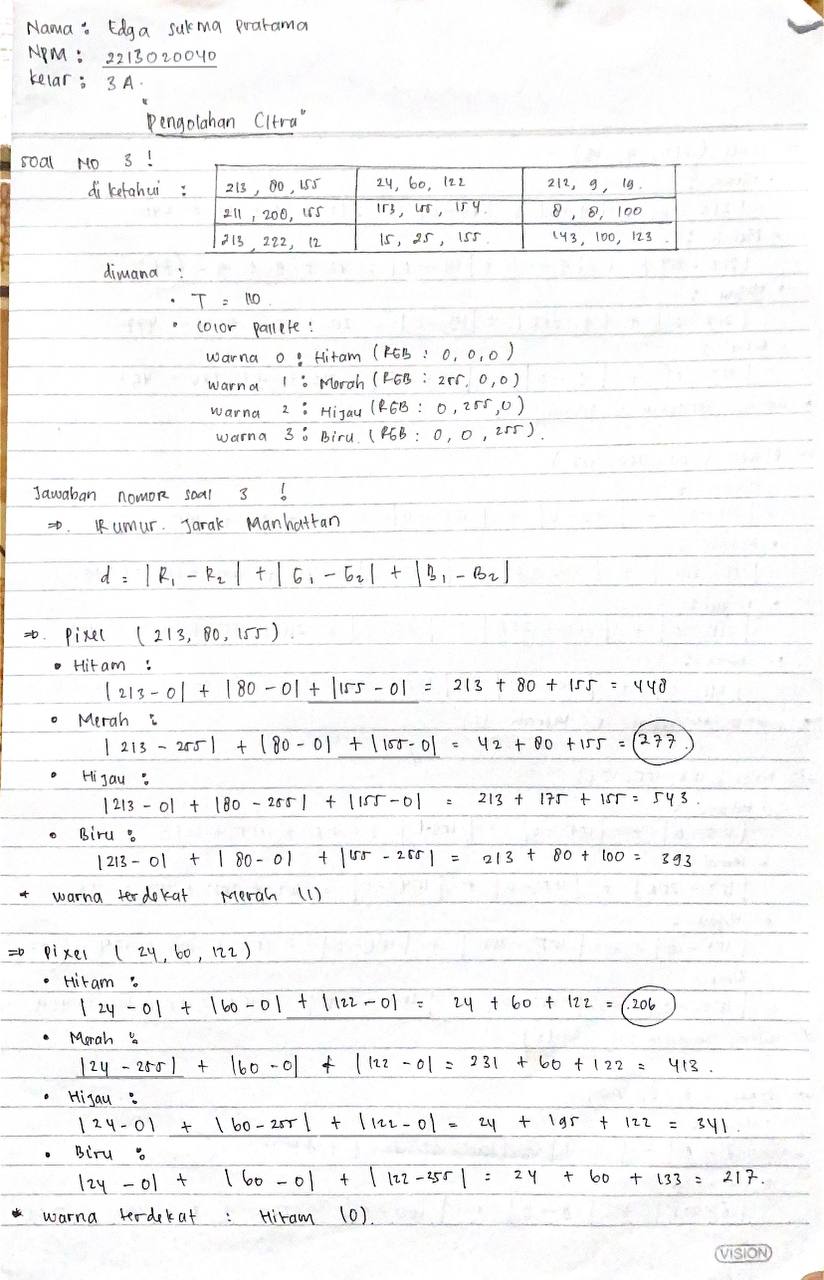 Nama : Edga Sukma Pratama
NPM : 2213020040
Kelas : 3 A.
"Pengolahan Citra"
Soal No 3 !
di ketahui :
213, 80, 155 24, 60, 122 212, 9, 19.
211, 200, 155 153, 155, 154. 8, 8, 100
213, 222, 12 15, 25, 155. 143, 100, 123
dimana :
• T = 110.
• Color pallete :
Warna 0 : Hitam (RGB : 0, 0, 0)
Warna 1 : Merah (RGB : 255, 0, 0)
Warna 2 : Hijau (RGB : 0, 255, 0)
Warna 3 : Biru (RGB : 0, 0, 255).
Jawaban nomor soal 3 !
⇒. Rumus Jarak Manhattan
d = |R₁ - R₂| + |G₁ - G₂| + |B₁ - B₂|
⇒. Pixel (213, 80, 155).
• Hitam :
|213-0| + |80-0| + |155-0| = 213 + 80 + 155 = 448
• Merah :
|213 - 255| + |80-0| + |155-0| = 42 + 80 + 155 = 277.
• Hijau :
|213-0| + |80-255| + |155-0| = 213 + 175 + 155 = 543.
• Biru :
|213-0| + |80-0| + |155-255| = 213 + 80 + 100 = 393
* Warna terdekat Merah (1)
⇒ Pixel (24, 60, 122)
• Hitam :
|24-0| + |60-0| + |122-0| = 24 + 60 + 122 = 206
• Merah :
|24-255| + |60-0| + |122-0| = 231 + 60 + 122 = 413.
• Hijau :
|24-0| + |60-255| + |122-0| = 24 + 195 + 122 = 341.
• Biru :
|24-0| + |60-0| + |122-255| = 24 + 60 + 133 = 217.
* Warna terdekat : Hitam (0).
VISION